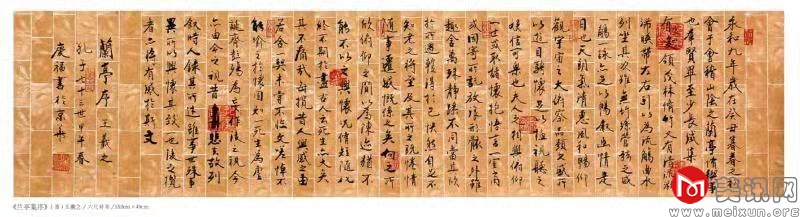 永和九年歲在癸丑暮春之初
會于會稽山陰之蘭亭脩禊事
也羣賢畢至少長咸集此地
有崇山峻領茂林脩竹又有清流激
湍暎帶左右引以為流觴曲水
列坐其次雖無絲竹管弦之盛
一觴一詠亦足以暢敘幽情是
日也天朗氣清惠風和暢仰
觀宇宙之大俯察品類之盛所
以遊目騁懷足以極視聽之
娛信可樂也夫人之相與俯仰
一世或取諸懷抱悟言一室之內
或因寄所託放浪形骸之外雖
趣舍萬殊靜躁不同當其欣
於所遇暫得於己快然自足不
知老之將至及其所之既惓情
隨事遷感慨係之矣向之所
欣俛仰之間以為陳迹猶不
能不以之興懷況脩短隨化
終期於盡古人云死生亦大矣
豈不痛哉每攬昔人興感之由
若合一契未嘗不臨文嗟悼不
能喻之於懷固知死生為虛
誕齊彭殤為妄作後之視今
亦由今之視昔悲夫故列
敘時人錄其所述雖世殊事
異所以興懷其致一也後之攬
者亦將有感於斯文
蘭亭序 王羲之
孔子七十三世甲午年春
慶福書於京華
《兰亭集序》（晋）王羲之/六尺对开/180cm×49cm
美讯网
www.meixun.org